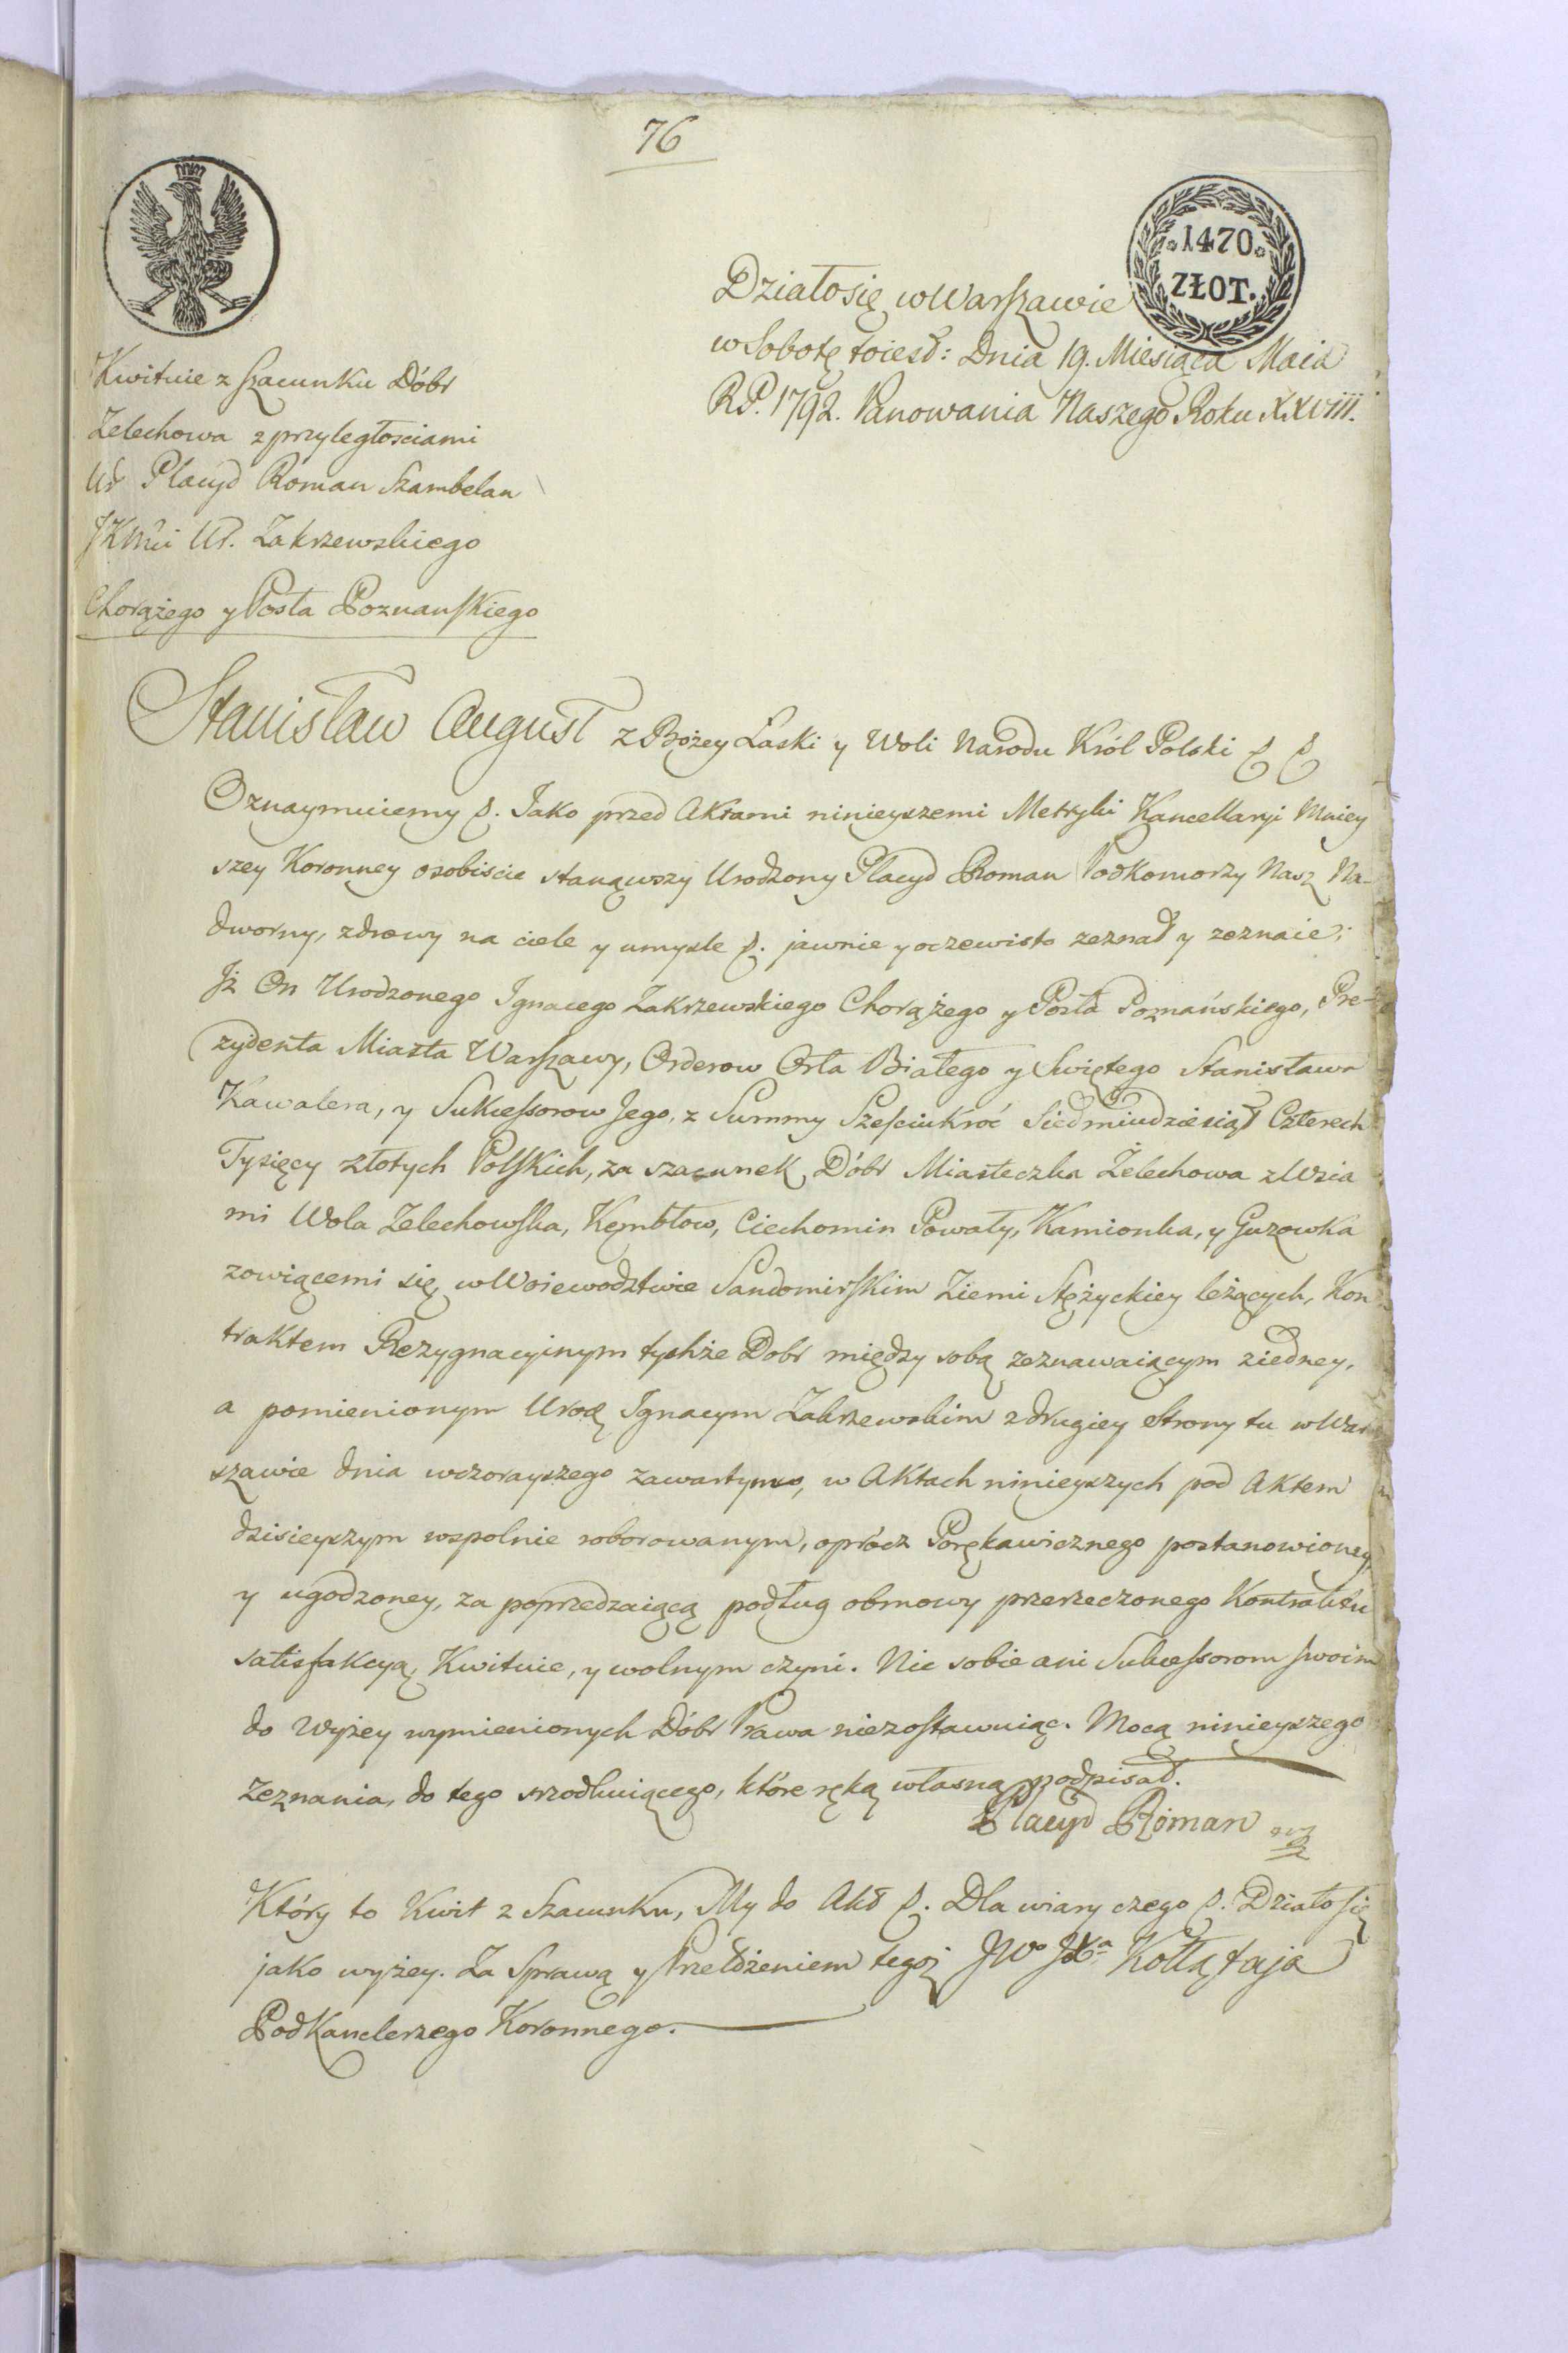 76
1470.
ZŁOT.
Działo się w Warszawie
w Sobotę toiest: Dnia 19. Miesiąca Maia
R.P. 1792. Panowania Naszego Roku XXVIII.
Kwituie z szacunku Dóbr
Zelechowa z przyległosciami
Ur Placyd Roman Szambelan
JKMci Ur. Zakrzewskiego
Chorążego y Posła Poznanskiego
Stanisław August z Bożey Łaski y Woli Narodu Król Polski
Oznaymuiemy. Jako przed Aktami ninieyszemi Metryki Kancellaryi Mniey
szey Koronney osobiscie stanąwszy Urodzony Placyd Roman Podkomorzy Nasz Na-
dworny, zdrowy na ciele y umysle. jawnie y oczewisto zeznał y zeznaie;
Jż On Urodzonego Ignacego Zakrzewskiego Chorążego y Posła Poznańskiego, Pre-
zydenta Miasta Warszawy, Orderow Orła Białego y Swiętego Stanisława
Kawalera, y Sukcessorow Jego, z Summy Szesciukroć Siedmiudziesiąt Czterech
Tysięcy złotych Polskich, za szacunek Dóbr Miasteczka Żelechowa z Wsia
mi Wola Zelechowska, Kembłow, Ciechomin Powały, Kamionka, y Guzowka
zowiącemi się, w Woiewodztwie Sandomirskim Ziemi Stężyckiey leżących, Kon
traktem Rezygnacyinym tychże Dobr między sobą zeznawaiącym ziedney,
a pomienionym Urod Ignacym Zakrzewskim z drugiey Strony tu w War
szawie dnia wczorayszego zawartym, w Aktach ninieyszych pod Aktem
dzisieyszym wspolnie roborowanym, oprócz Porękawicznego postanowioney
y ugodzoney, za poprzedzaiącą podług obmowy przerzeczonego Kontraktu
satisfakcyą, Kwituie, y wolnym czyni. Nic sobie ani Sukcessorom swoim
do Wyżey wymienionych Dóbr Prawa niezostawuiąc. Mocą ninieyszego
Zeznania, do tego srzodkuiącego, które ręką własną podpisał.
Placyd Roman
Który to Kwit z Szacunku, My do Akt. Dla wiary czego. Działo się
jako wyżey. Za Sprawą y Przełożeniem tegoż JWo JXa Kołłątaja
PodKanclerzego Koronnego.